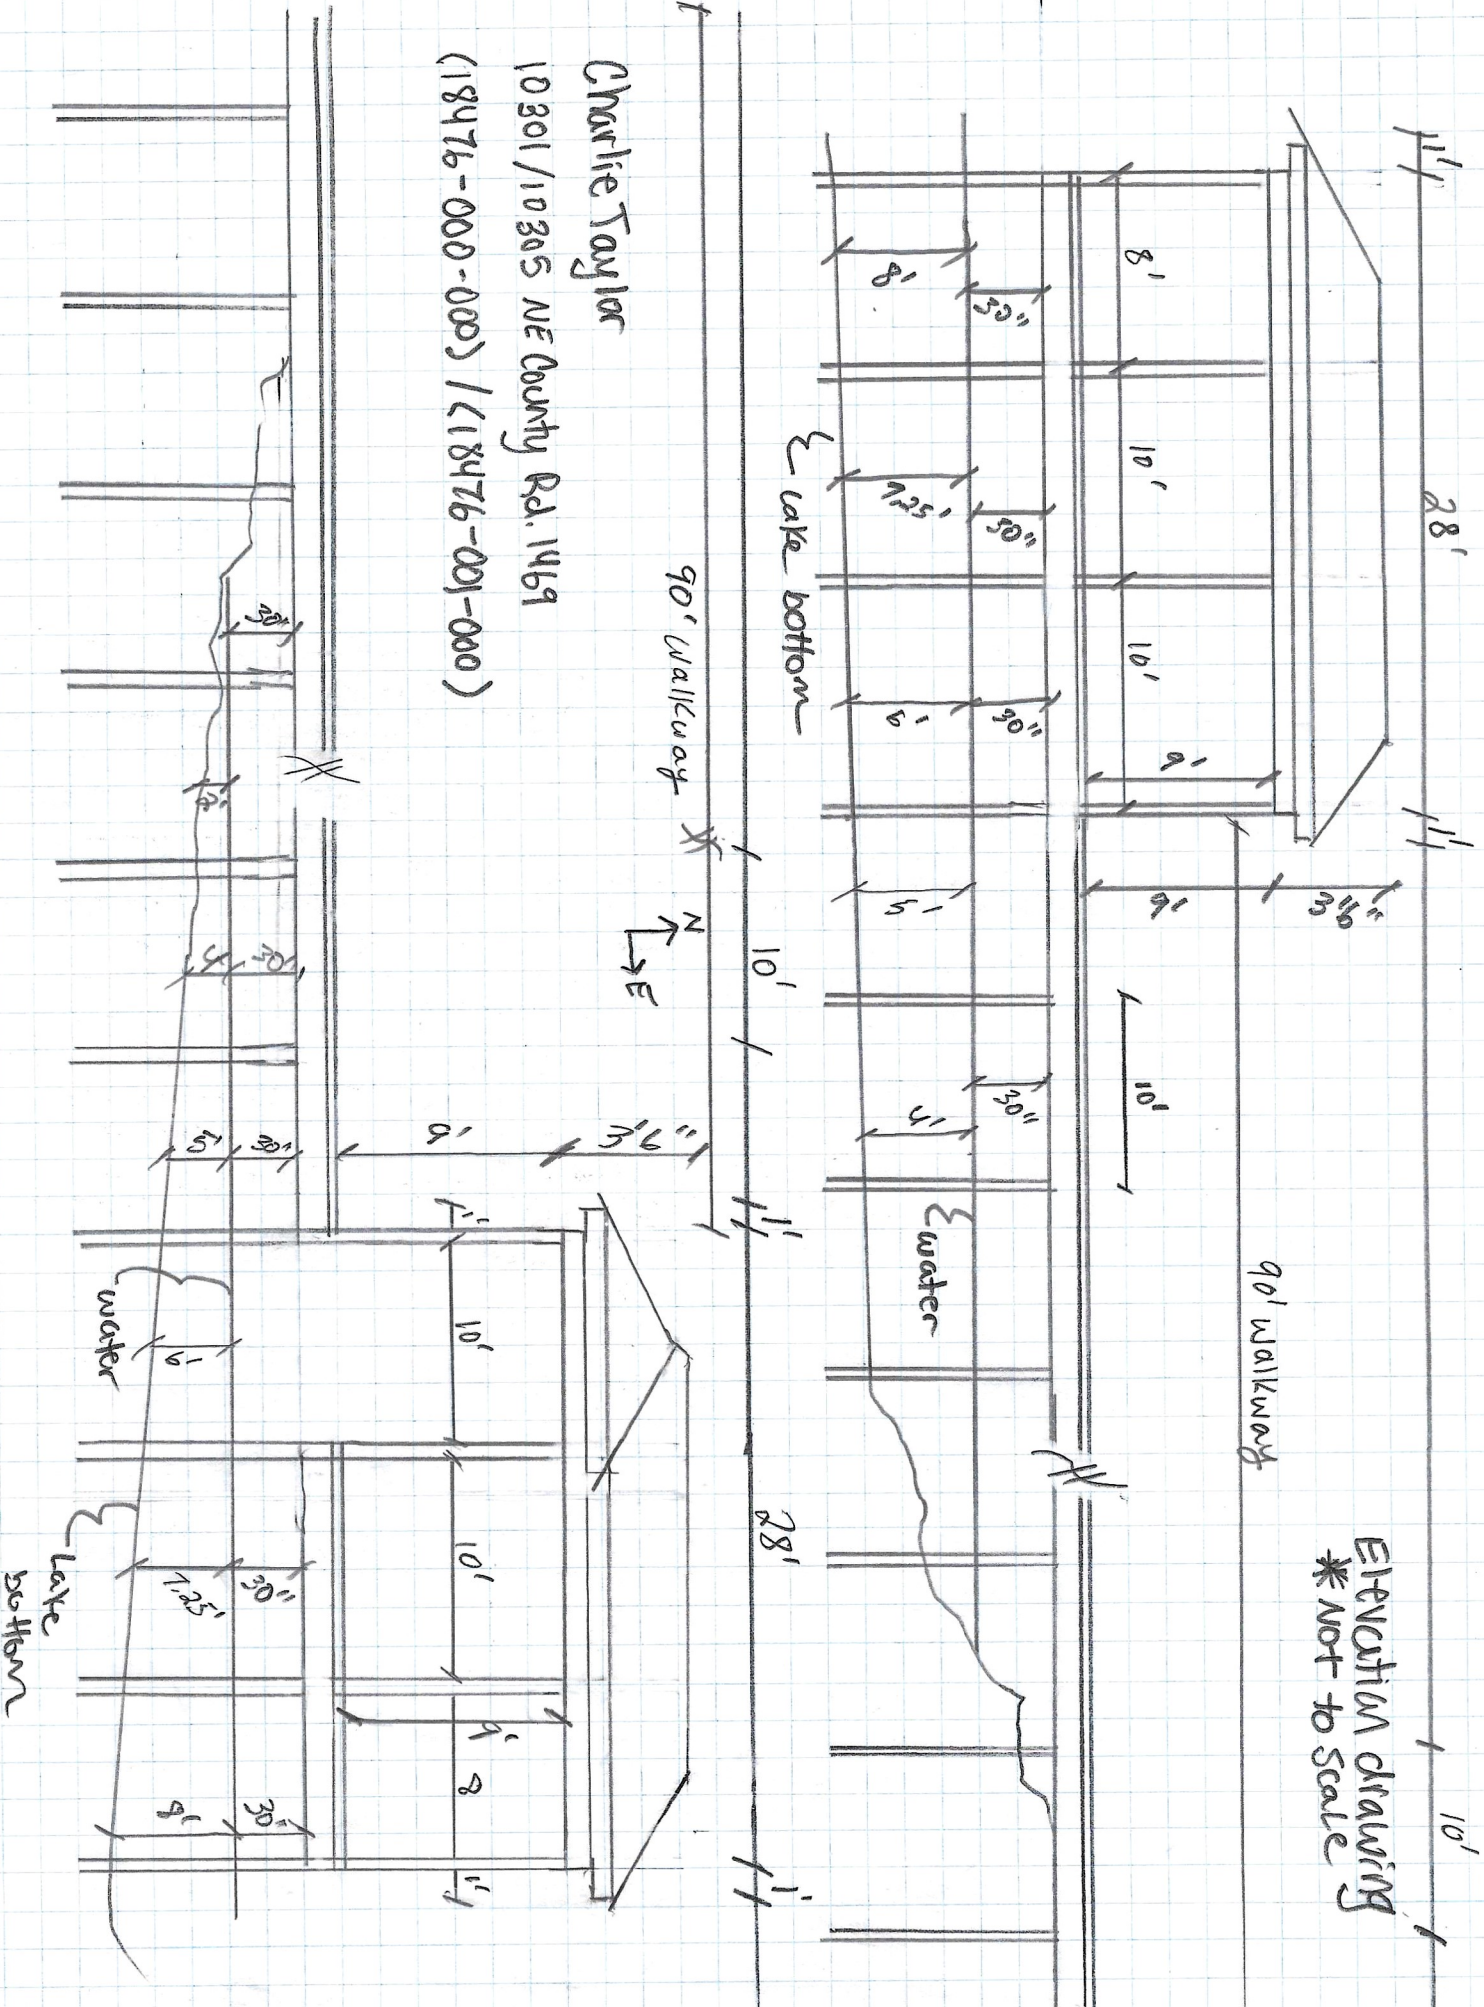 Elevation drawing
*Not to scale
1'
28'
1'
10'
8'
10'
10'
9'
9'
3'6"
10'
90' walkway
8'
30"
7.25'
30"
6'
30"
5'
30"
4'
{ Lake bottom
{ water
90' walkway
10'
1'
28'
1'
N
E
Charlie Taylor
10301/10305 NE County Rd. 1469
(18476-000-000) / (18476-001-000)
9'
3'6"
1'
10'
10'
8
1'
9'
30"
30"
5'
30"
6'
7.25'
30"
8'
30"
water
Lake
bottom